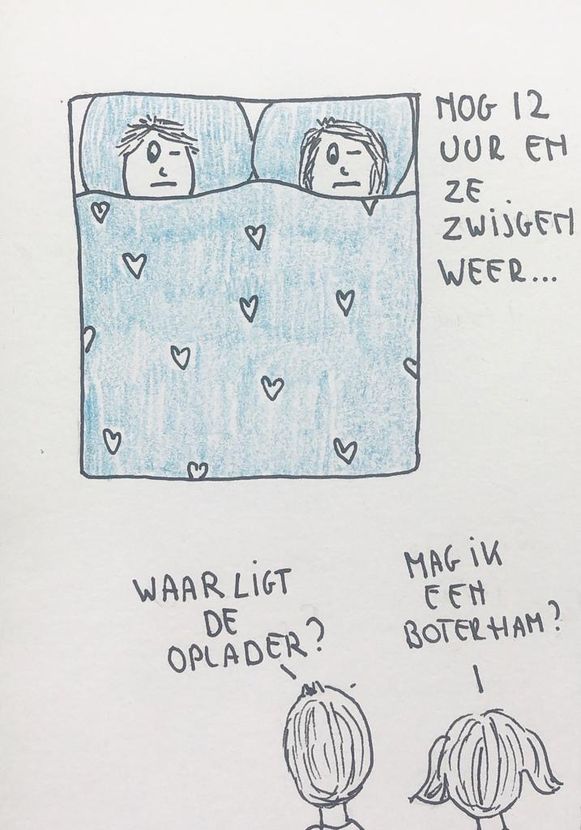 NOG 12
UUR EN
ZE
ZWIJGEN
WEER...
WAAR LIGT
DE
OPLADER?
MAG IK
EEN
BOTERHAM?